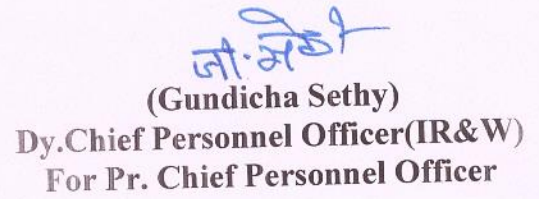 जी. सेठी
(Gundicha Sethy)
Dy.Chief Personnel Officer(IR&W)
For Pr. Chief Personnel Officer